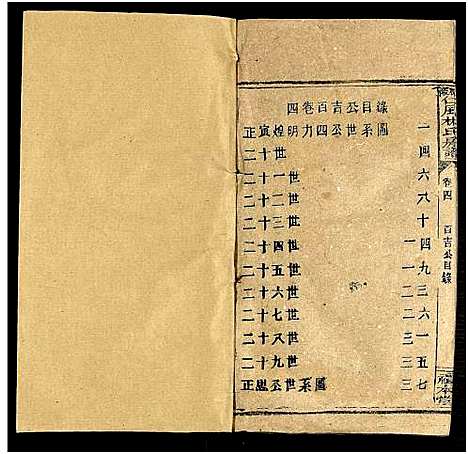 四卷百吉公目錄
二十世 四
二十一世 六
二十二世 八
二十三世 十
二十四世 一四
二十五世 一九
二十六世 二三
二十七世 二六
二十八世 三一
二十九世 三五
正恩公世系圖 三七
林氏房譜
卷四
百吉公目錄